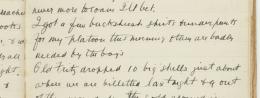 never more to roam I'll bet.
I got a few buckshee shirts & underpants
for my platoon this morning others are badly
needed by the boys
Old Fritz dropped 10 big shells just about
where we are billetted last night & 9 out
of the